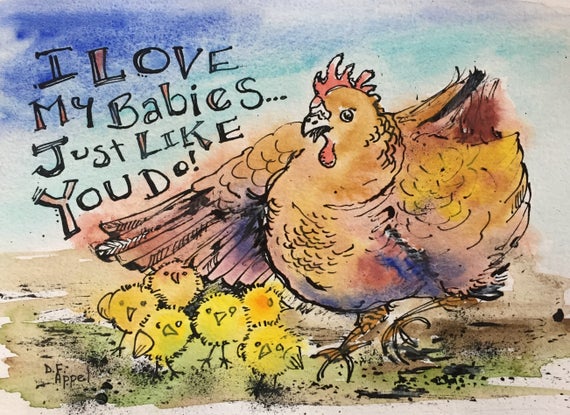 I LOVE
My BaBies...
Just LIKE
YOU DO!
D.F.
Appel